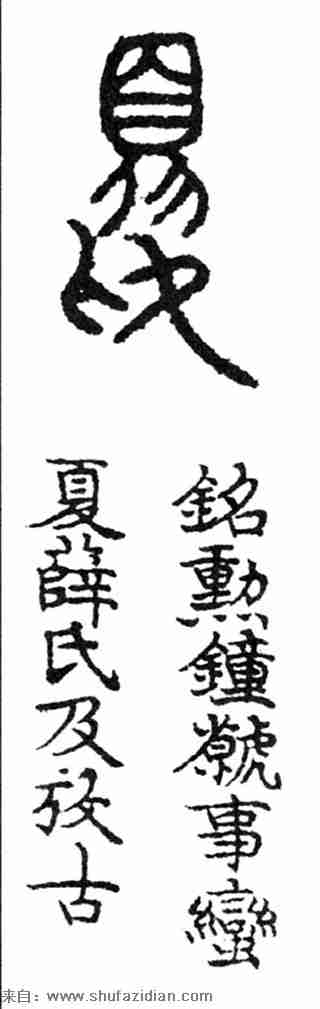 夏
銘勲鐘虩事蠻
夏薛氏及攷古
来自：www.shufazidian.com